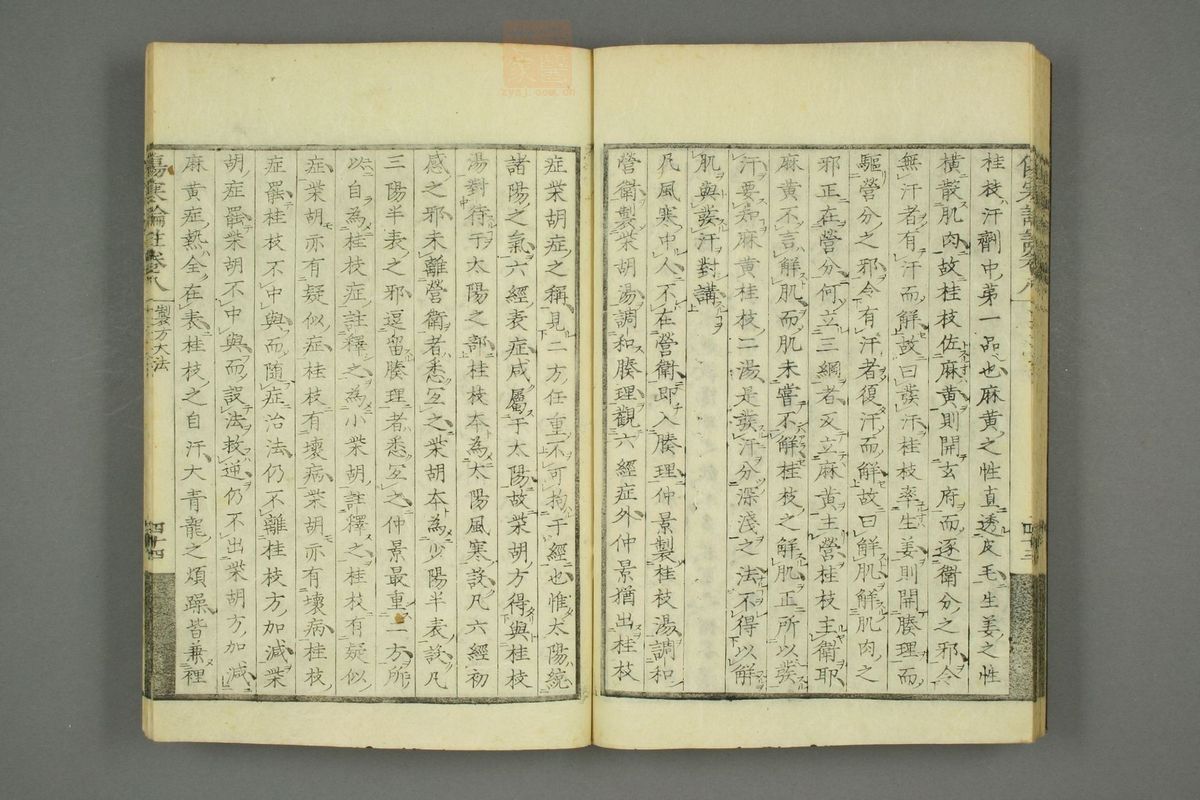 桂枝汗劑中第一品也麻黃之性直透皮毛生姜之性
橫散肌肉故桂枝佐麻黃則開玄府而逐衛分之邪令
無汗者有汗而解故曰發汗桂枝率生姜則開腠理而
驅營分之邪令有汗者復汗而解故曰解肌解肌肉之
邪正在營分何立三綱者反立麻黃主營桂枝主衛耶
麻黃不言解肌而肌未嘗不解桂枝之解肌正所以發
汗要知麻黃桂枝二湯是發汗分深淺之法不得以解
肌與發汗對講
凡風寒中人不在營衛即入腠理仲景製桂枝湯調和
營衛製柴胡湯調和腠理觀六經症外仲景猶出桂枝
症柴胡症之稱見二方任重不可拘于經也惟太陽統
諸陽之氣六經表症咸屬于太陽故柴胡方得與桂枝
湯對待于太陽之部桂枝本為太陽風寒設凡六經初
感之邪未離營衛者悉宜之柴胡本為少陽半表設凡
三陽半表之邪逗留腠理者悉宜之仲景最重二方所
以自為桂枝症註釋之為小柴胡註釋之桂枝有疑似
症柴胡亦有疑似症桂枝有壞病柴胡亦有壞病桂枝
症罷桂枝不中與而隨症治法仍不離桂枝方加減柴
胡症罷柴胡不中與而誤法救逆仍不出柴胡方加減
麻黃症熱全在表桂枝之自汗大青龍之煩躁皆兼裡
傷寒論註卷八
製方大法
四十四
四十三
zysj.com.cn